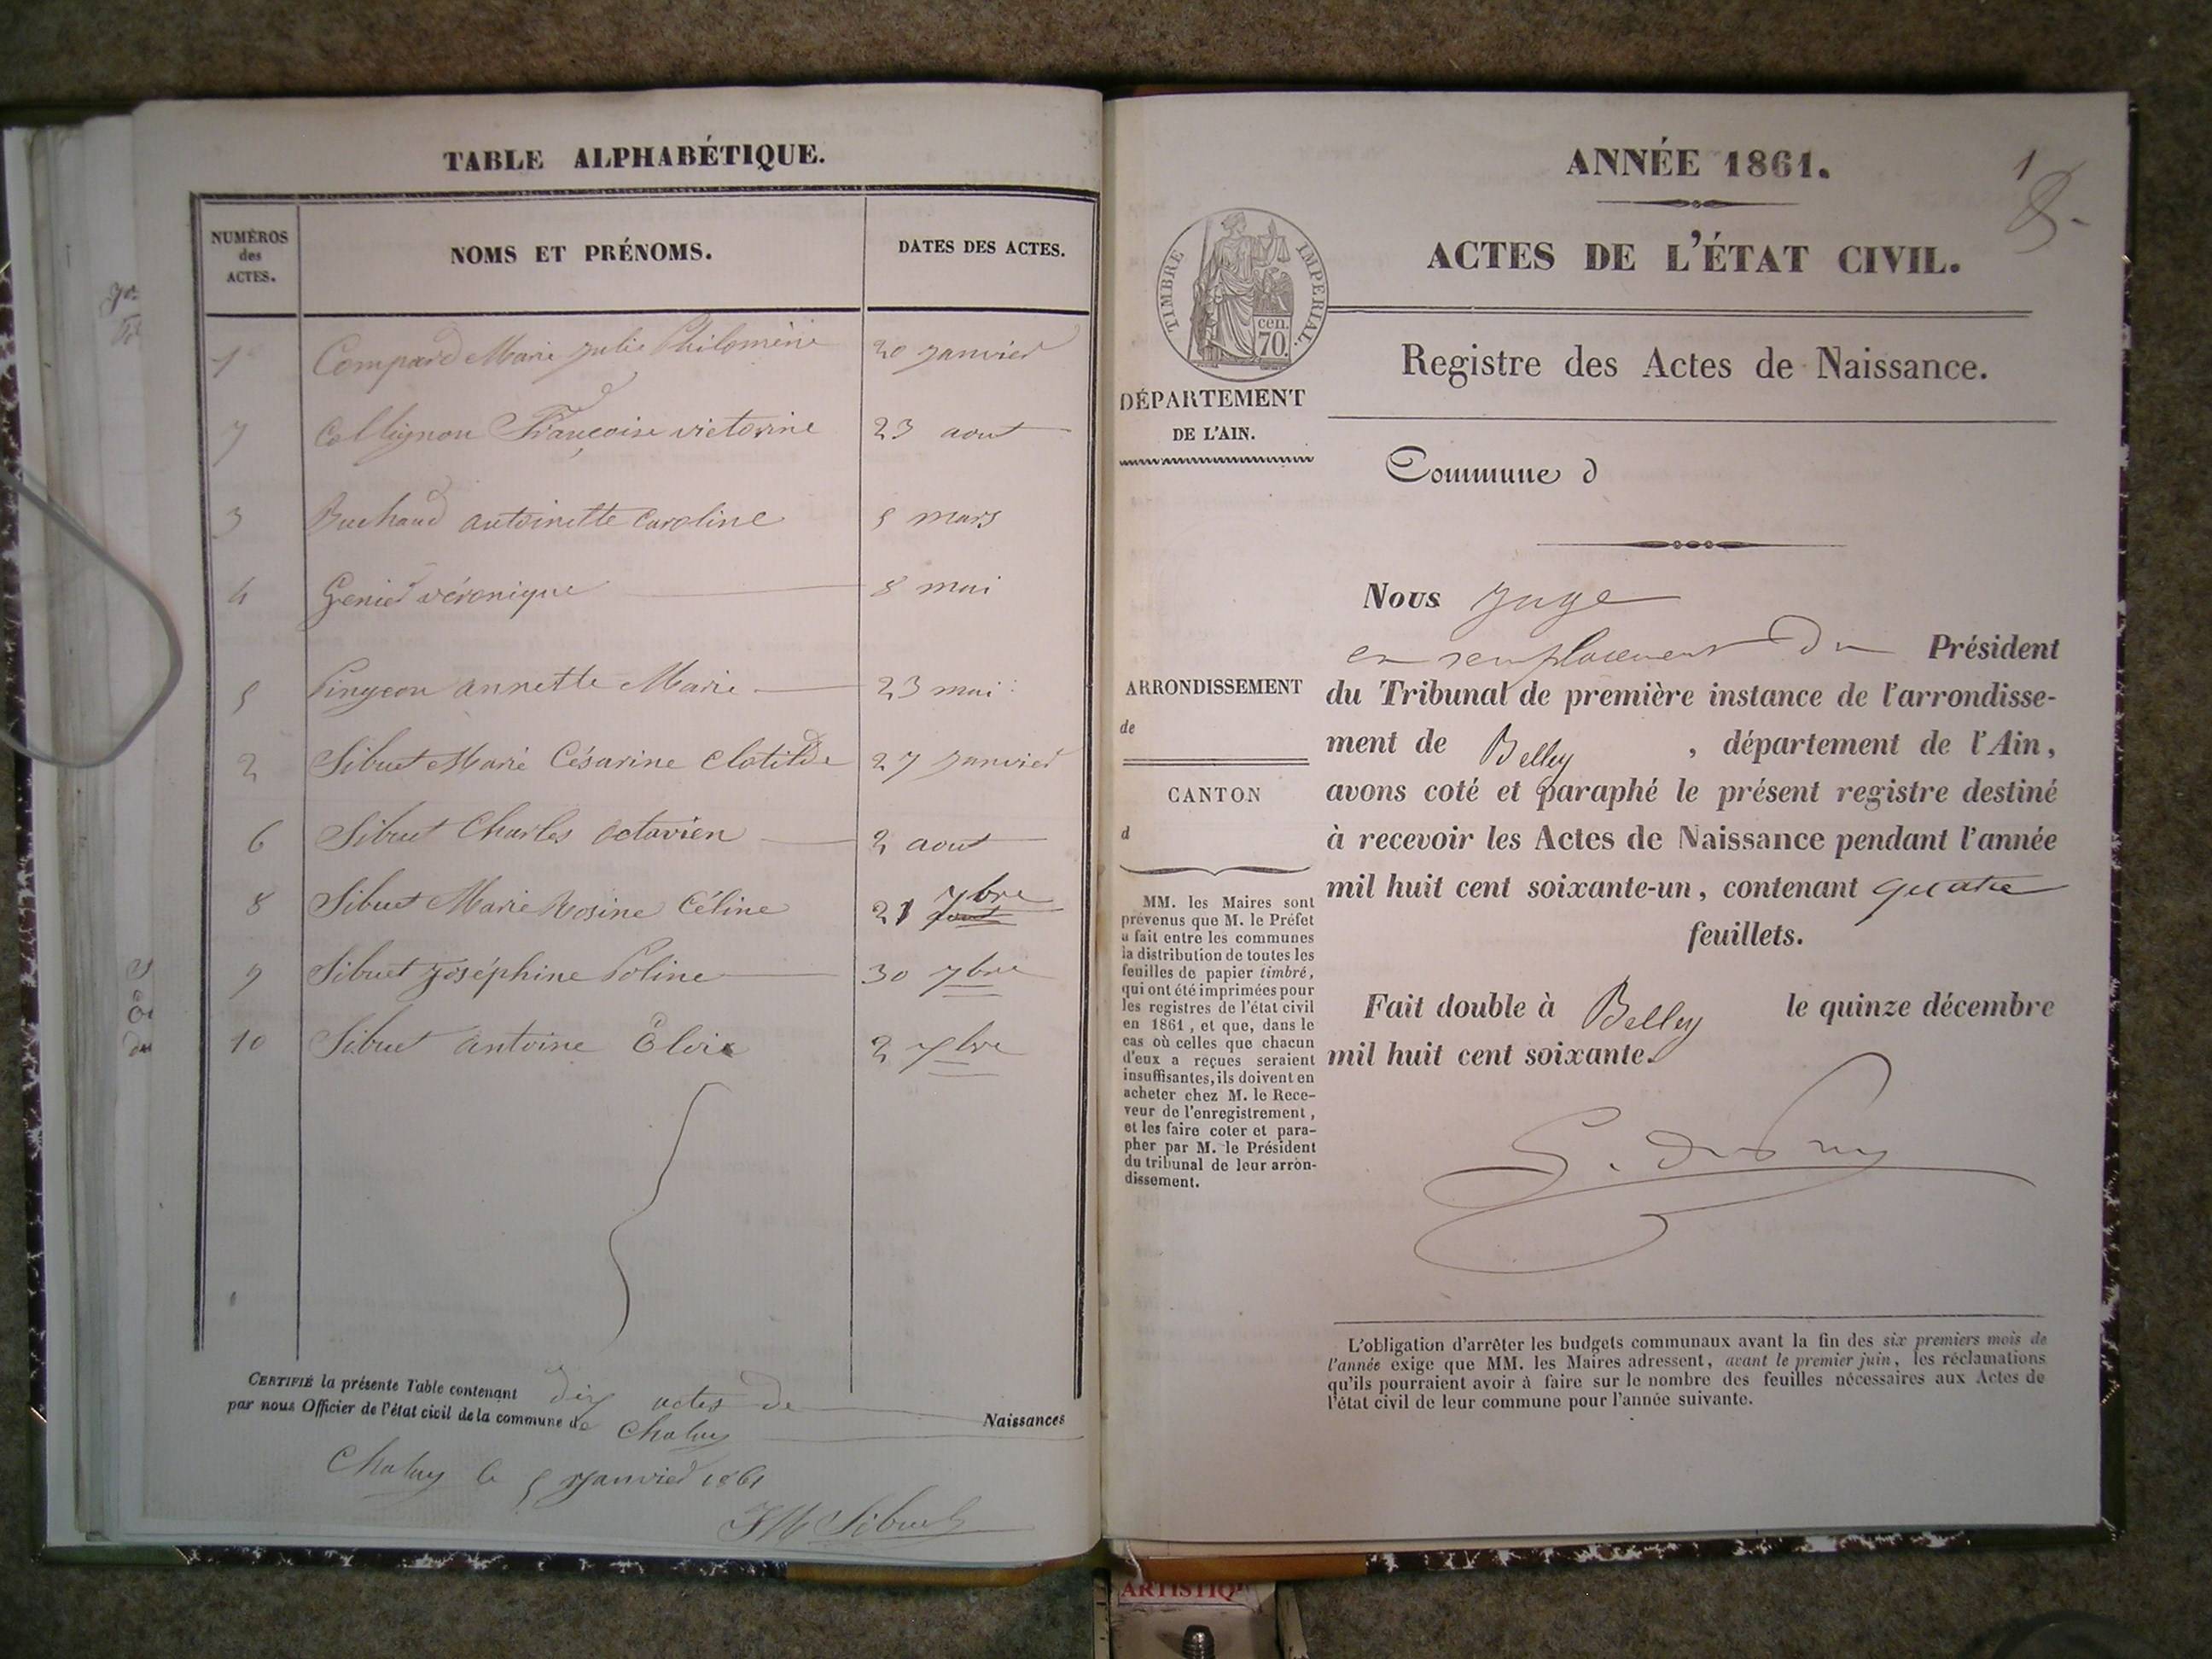 TABLE ALPHABÉTIQUE.
NUMÉROS des ACTES.
NOMS ET PRÉNOMS.
DATES DES ACTES.
1 Compard Marie Julie Philomène 20 janvier
7 Collignon Françoise victorine 23 aout
3 Buchaud antoinette Caroline 5 mars
4 Genier véronique 8 mai
5 Pingeon annette Marie 23 mai
2 Sibuet Marie Césarine Clotilde 27 janvier
6 Sibuet Charles octavien 2 aout
8 Sibuet Marie Rosine Céline 21 7bre
9 Sibuet joséphine Poline 30 7bre
10 Sibuet antoine Eloi 2 7bre
CERTIFIÉ la présente Table contenant dix actes de Naissances
par nous Officier de l'état civil de la commune de Chaley
Chaley le 5 janvier 1861
JM Sibuet
ANNÉE 1861.
1
ACTES DE L'ÉTAT CIVIL.
TIMBRE IMPERIAL.
cen.
70.
Registre des Actes de Naissance.
DÉPARTEMENT
DE L'AIN.
Commune d
Nous juge
en remplacement du Président
du Tribunal de première instance de l'arrondisse-
ment de Belley , département de l'Ain,
avons coté et paraphé le présent registre destiné
à recevoir les Actes de Naissance pendant l'année
mil huit cent soixante-un, contenant quatre
feuillets.
Fait double à Belley le quinze décembre
mil huit cent soixante.
ARRONDISSEMENT
de
CANTON
d
MM. les Maires sont
prévenus que M. le Préfet
a fait entre les communes
la distribution de toutes les
feuilles de papier timbré,
qui ont été imprimées pour
les registres de l'état civil
en 1861, et que, dans le
cas où celles que chacun
d'eux a reçues seraient
insuffisantes, ils doivent en
acheter chez M. le Rece-
veur de l'enregistrement,
et les faire coter et para-
pher par M. le Président
du tribunal de leur arron-
dissement.
L'obligation d'arrêter les budgets communaux avant la fin des six premiers mois de
l'année exige que MM. les Maires adressent, avant le premier juin, les réclamations
qu'ils pourraient avoir à faire sur le nombre des feuilles nécessaires aux Actes de
l'état civil de leur commune pour l'année suivante.
ARTISTIQ